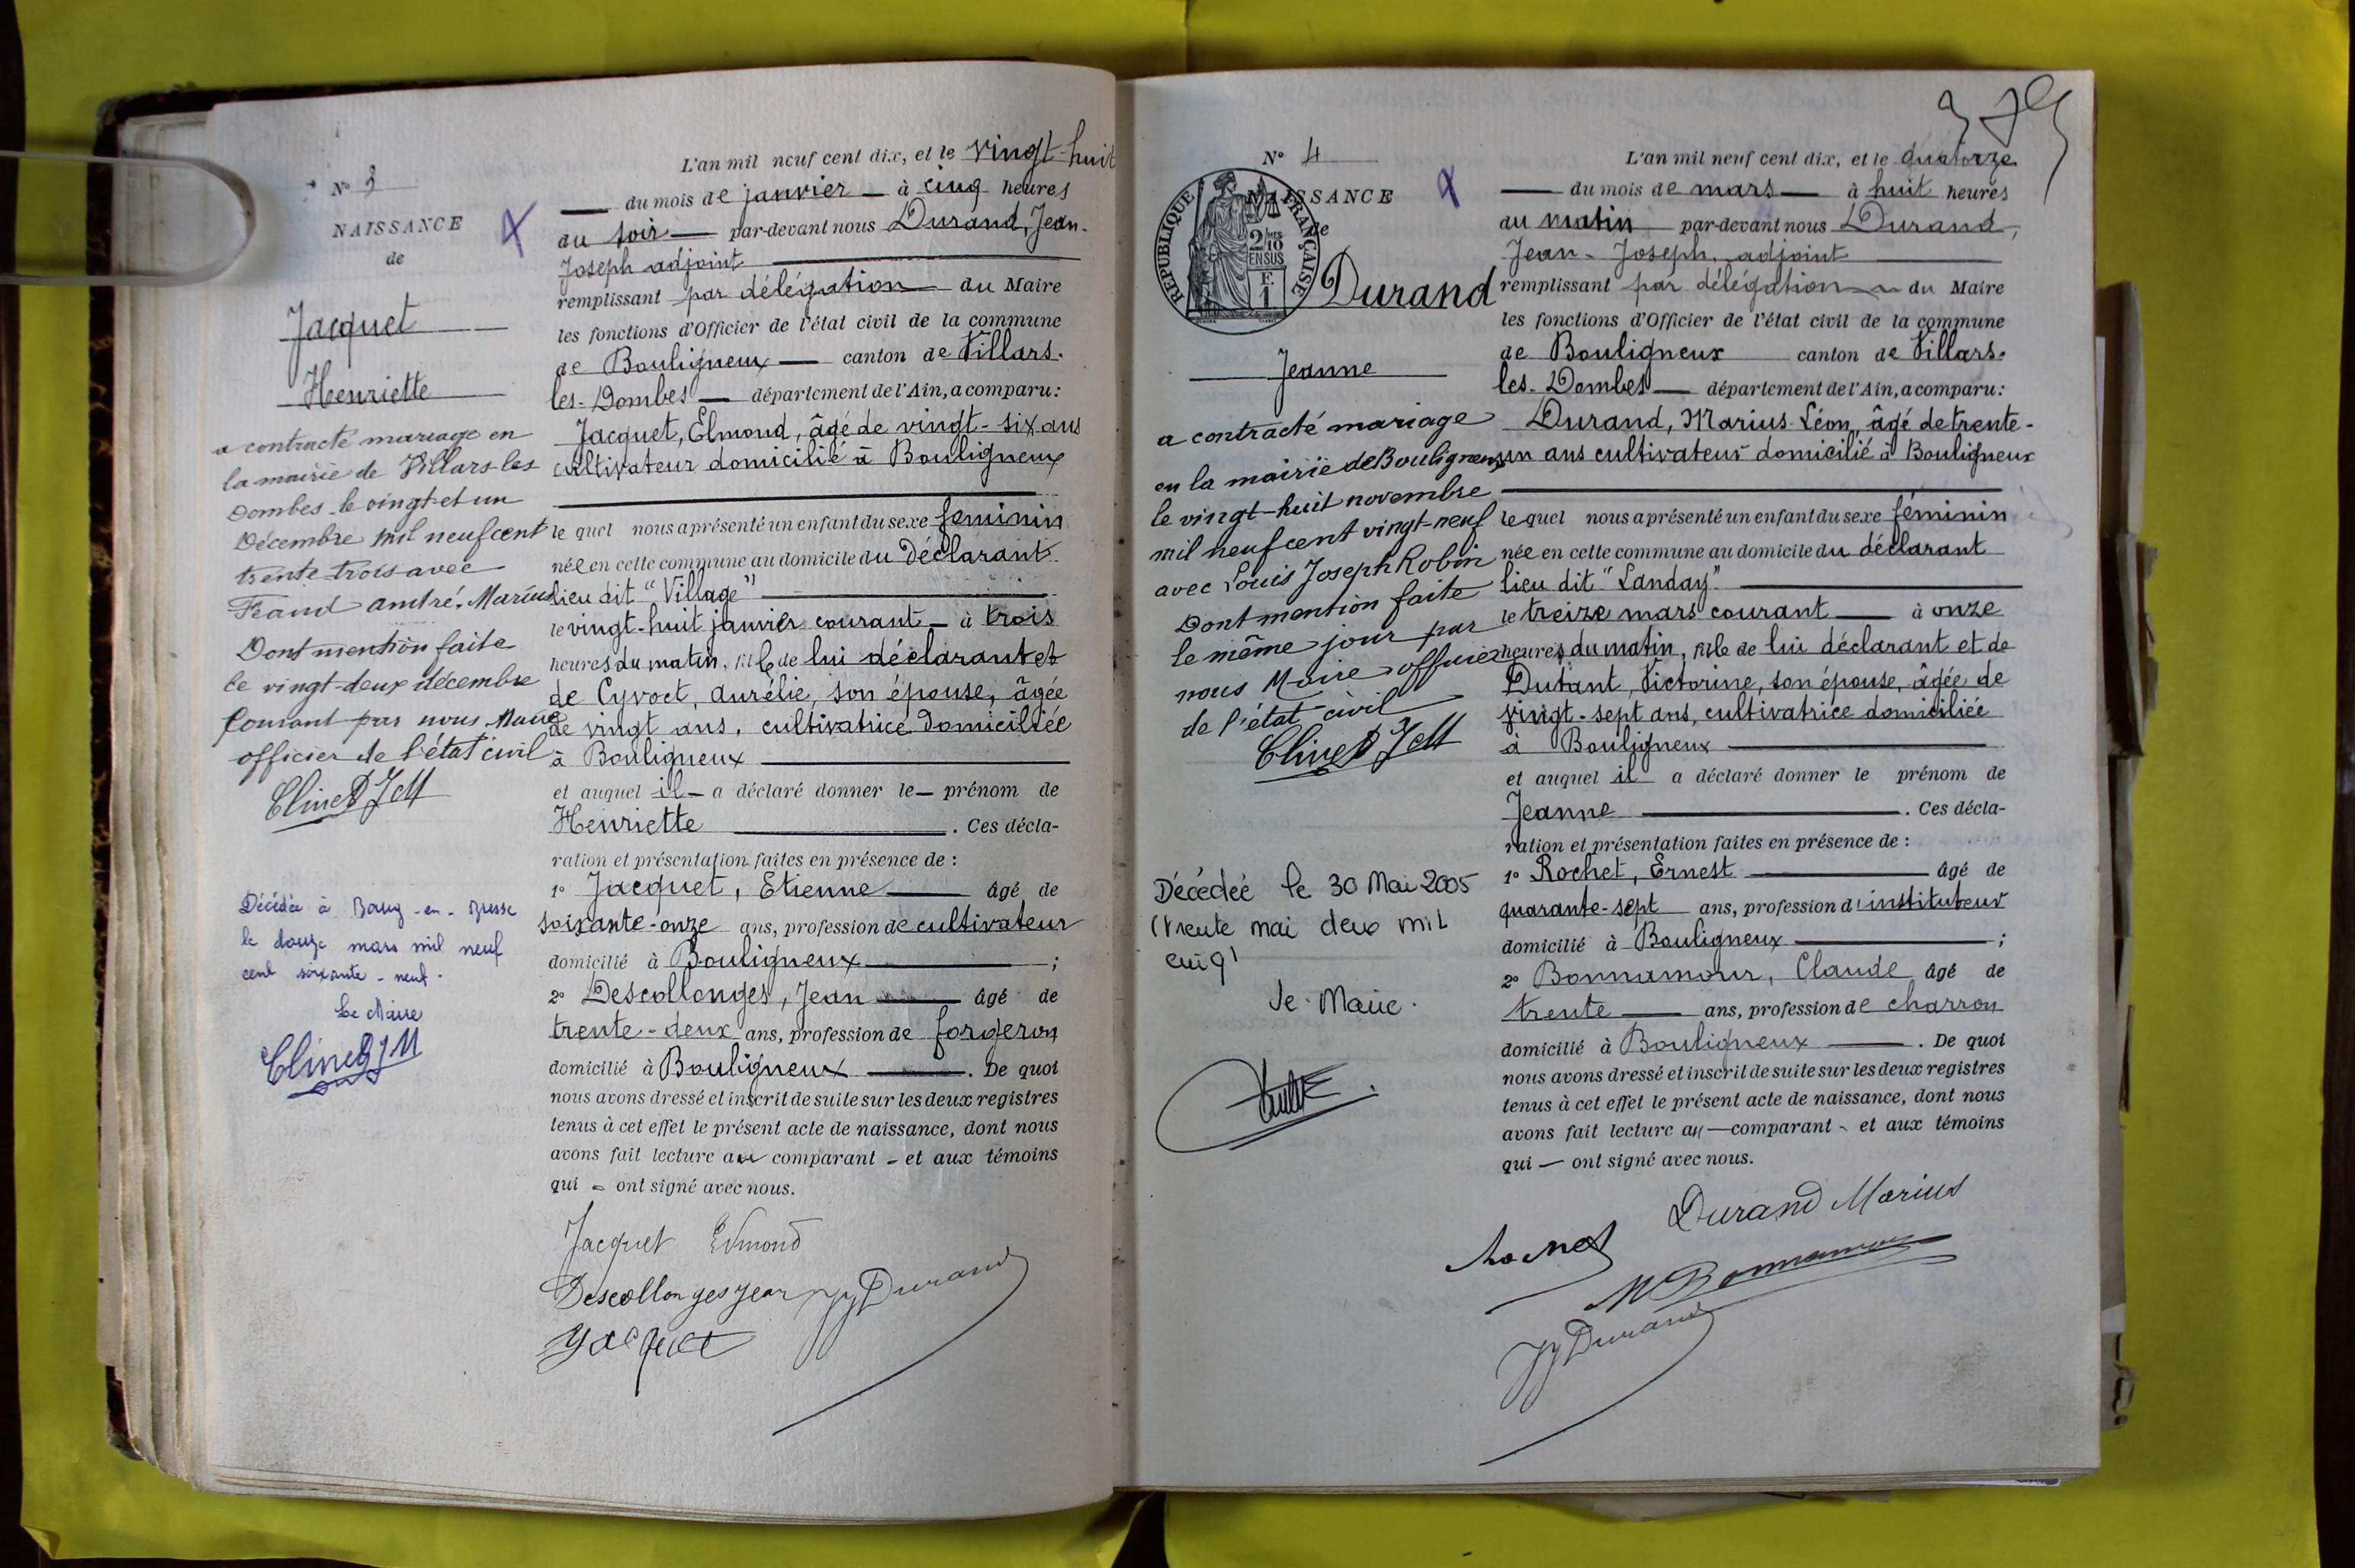 N° 3
NAISSANCE
de
Jacquet
Henriette
a contracté mariage en
la mairie de Villars les
Dombes le vingt-et un
Décembre mil neuf cent
trente trois avec
Féaud andré, Marius
Dont mention faite
le vingt-deux décembre
Courant par nous Maire
officier de l'état civil
Décédée à Bourg-en-Bresse
le douze mars mil neuf
cent soixante-neuf.
Le Maire
L'an mil neuf cent dix, et le vingt-huit
du mois de janvier à cinq heures
du soir par-devant nous Durand, Jean-
Joseph adjoint
remplissant par délégation du Maire
les fonctions d'Officier de l'état civil de la commune
de Bouligneux canton de Villars-
les-Dombes département de l'Ain, a comparu:
Jacquet, Edmond, âgé de vingt-six ans
cultivateur domicilié à Bouligneux
le quel nous a présenté un enfant du sexe féminin
née en cette commune au domicile du Déclarant
lieu dit "Village"
le vingt-huit janvier courant à trois
heures du matin, fille de lui déclarant et
de Cyvoct, Aurélie, son épouse, âgée
de vingt ans, cultivatrice Domiciliée
à Bouligneux
et auquel il a déclaré donner le prénom de
Henriette . Ces décla-
ration et présentation faites en présence de :
1° Jacquet, Etienne âgé de
soixante-onze ans, profession de cultivateur
domicilié à Bouligneux ;
2° Descollonges, Jean âgé de
trente-deux ans, profession de forgeron
domicilié à Bouligneux . De quoi
nous avons dressé et inscrit de suite sur les deux registres
tenus à cet effet le présent acte de naissance, dont nous
avons fait lecture au comparant et aux témoins
qui ont signé avec nous.
Jacquet Edmond
Descollonges Jean JJ Durand
Jacquet
379
N° 4
NAISSANCE
de
RÉPUBLIQUE FRANÇAISE
2/10
EN SUS
Durand
Jeanne
a contracté mariage
en la mairie de Bouligneux
le vingt-huit novembre
mil neuf cent vingt-neuf
avec Louis Joseph Robin
Dont mention faite
le même jour par
nous Maire officier
de l'état civil
Décédée le 30 Mai 2005
(trente mai deux mil
cinq)
Le Maire.
L'an mil neuf cent dix, et le quatorze
du mois de mars à huit heures
du matin par-devant nous Durand,
Jean-Joseph, adjoint
remplissant par délégation du Maire
les fonctions d'Officier de l'état civil de la commune
de Bouligneux canton de Villars-
les-Dombes département de l'Ain, a comparu:
Durand, Marius-Léon, âgé de trente-
un ans cultivateur domicilié à Bouligneux
lequel nous a présenté un enfant du sexe féminin
née en cette commune au domicile du déclarant
lieu dit "Landay"
le treize mars courant à onze
heures du matin, fille de lui déclarant et de
Dutant, Victorine, son épouse, âgée de
vingt-sept ans, cultivatrice domiciliée
à Bouligneux
et auquel il a déclaré donner le prénom de
Jeanne . Ces décla-
ration et présentation faites en présence de :
1° Rochet, Ernest âgé de
quarante-sept ans, profession d'instituteur
domicilié à Bouligneux ;
2° Bonnamour, Claude âgé de
trente ans, profession de charron
domicilié à Bouligneux . De quoi
nous avons dressé et inscrit de suite sur les deux registres
tenus à cet effet le présent acte de naissance, dont nous
avons fait lecture au comparant et aux témoins
qui ont signé avec nous.
Durand Marius
Rochet
Bonnamour
JJ Durand